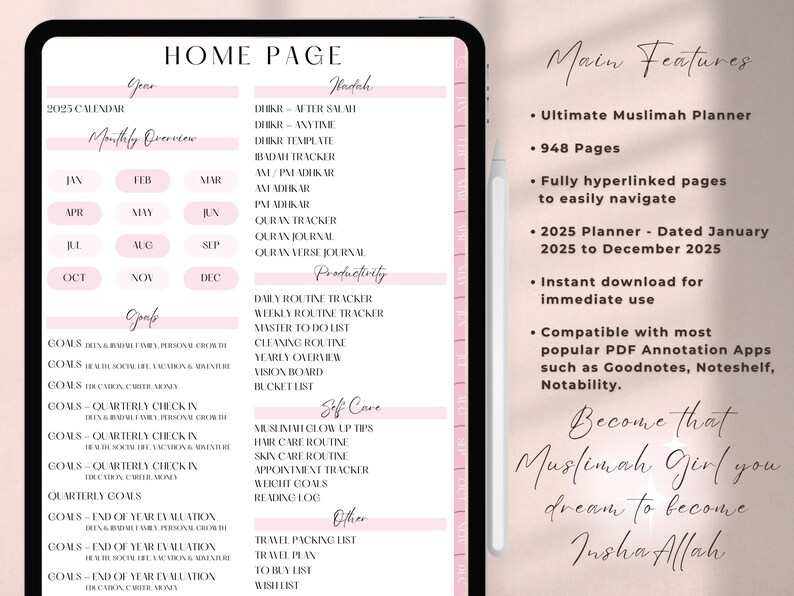 HOME PAGE
Year
2025 CALENDAR
Monthly Overview
JAN FEB MAR
APR MAY JUN
JUL AUG SEP
OCT NOV DEC
Goals
GOALS DEEN & IBADAH, FAMILY, PERSONAL GROWTH
GOALS HEALTH, SOCIAL LIFE, VACATION & ADVENTURE
GOALS EDUCATION, CAREER, MONEY
GOALS – QUARTERLY CHECK IN
DEEN & IBADAH, FAMILY, PERSONAL GROWTH
GOALS – QUARTERLY CHECK IN
HEALTH, SOCIAL LIFE, VACATION & ADVENTURE
GOALS – QUARTERLY CHECK IN
EDUCATION, CAREER, MONEY
QUARTERLY GOALS
GOALS – END OF YEAR EVALUATION
DEEN & IBADAH, FAMILY, PERSONAL GROWTH
GOALS – END OF YEAR EVALUATION
HEALTH, SOCIAL LIFE, VACATION & ADVENTURE
GOALS – END OF YEAR EVALUATION
EDUCATION, CAREER, MONEY
Ibadah
DHIKR – AFTER SALAH
DHIKR – ANYTIME
DHIKR TEMPLATE
IBADAH TRACKER
AM / PM ADHKAR
AM ADHKAR
PM ADHKAR
QURAN TRACKER
QURAN JOURNAL
QURAN VERSE JOURNAL
Productivity
DAILY ROUTINE TRACKER
WEEKLY ROUTINE TRACKER
MASTER TO DO LIST
CLEANING ROUTINE
YEARLY OVERVIEW
VISION BOARD
BUCKET LIST
Self Care
MUSLIMAH GLOW UP TIPS
HAIR CARE ROUTINE
SKIN CARE ROUTINE
APPOINTMENT TRACKER
WEIGHT GOALS
READING LOG
Other
TRAVEL PACKING LIST
TRAVEL PLAN
TO BUY LIST
WISH LIST
JAN
FEB
MAR
APR
MAY
JUN
JUL
AUG
SEP
OCT
NOV
DEC
Main Features
• Ultimate Muslimah Planner
• 948 Pages
• Fully hyperlinked pages
to easily navigate
• 2025 Planner - Dated January
2025 to December 2025
• Instant download for
immediate use
• Compatible with most
popular PDF Annotation Apps
such as Goodnotes, Noteshelf,
Notability.
Become that
Muslimah Girl you
dream to become
InshaAllah